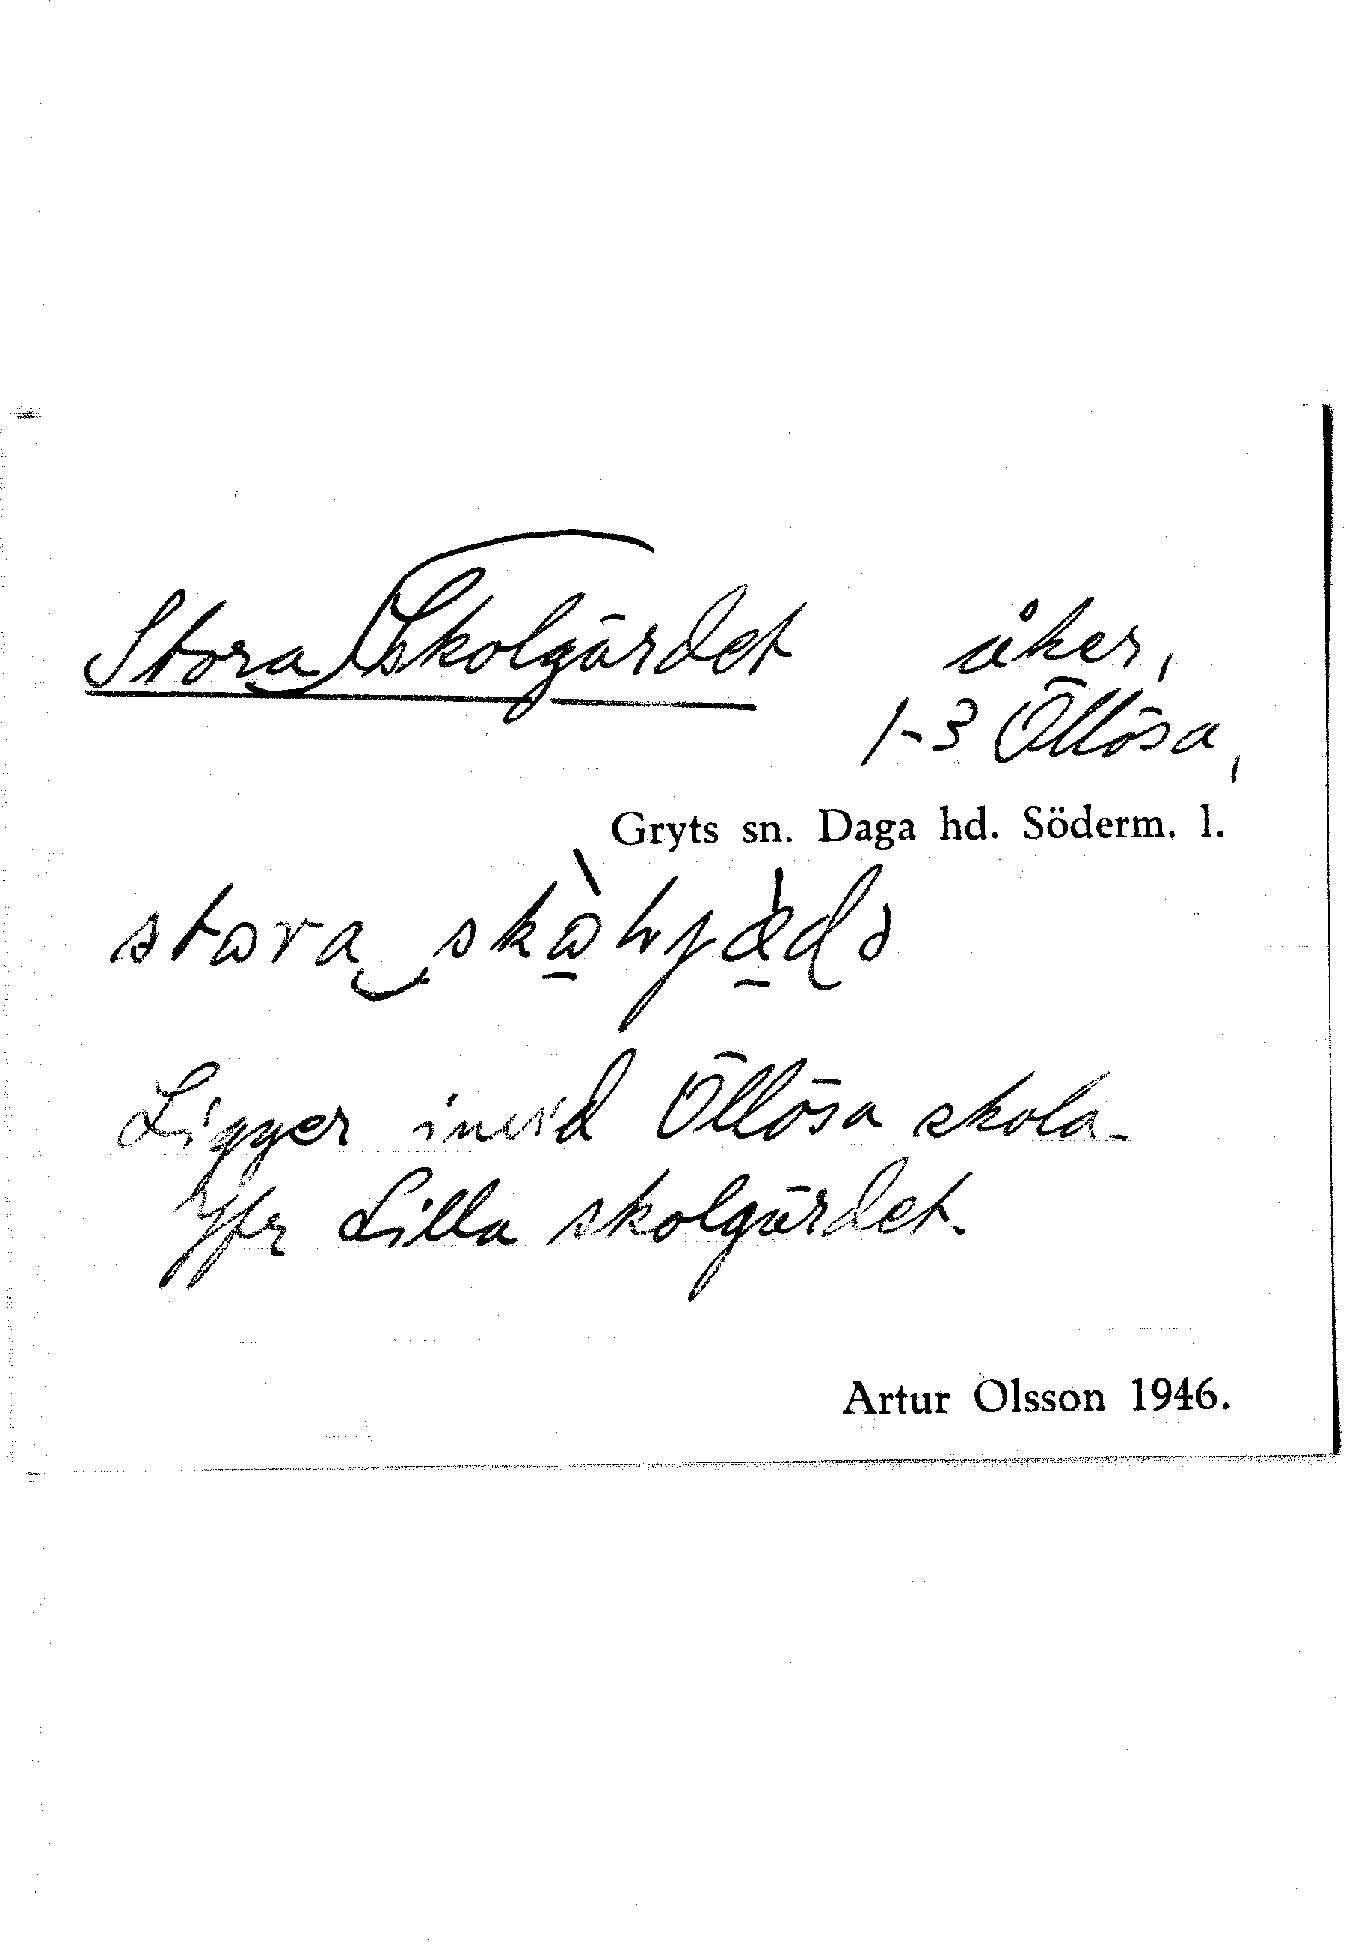 Stora Skolgärdet åker,
1-3 Öllösa,
Gryts sn. Daga hd. Söderm. l.
stora
Ligger invid Öllösa skola.
Jfr Lilla skolgärdet.
Artur Olsson 1946.